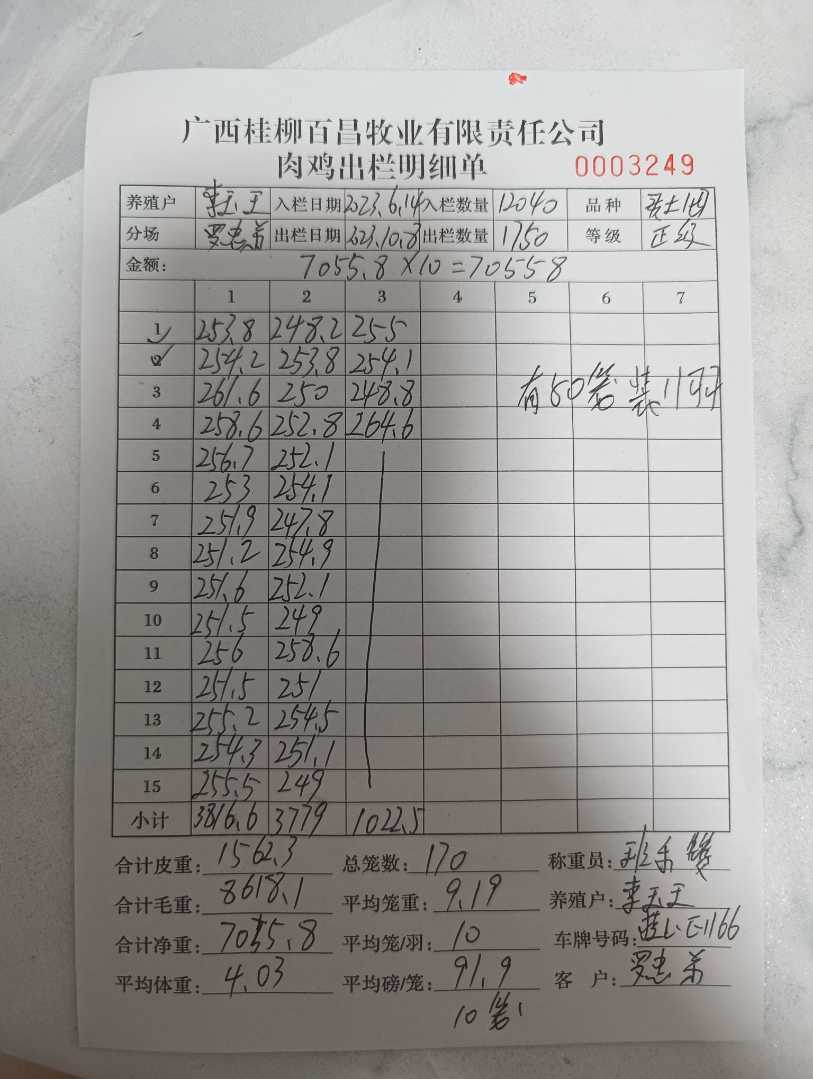 广西桂柳百昌牧业有限责任公司
肉鸡出栏明细单 0003249
养殖户 李玉王 入栏日期 2023.6.14 入栏数量 12040 品种
分场 罗惠弟 出栏日期 2023.10.8 出栏数量 1750 等级 正级
金额: 7055.8×10=70558
1 2 3 4 5 6 7
1 253.8 248.2 255
2 254.2 253.8 254.1
3 261.6 250 248.8 有50笼装11羽
4 258.6 252.8 264.6
5 256.7 252.1
6 253 254.1
7 251.9 247.8
8 251.2 254.9
9 251.6 252.1
10 251.5 249
11 256 258.6
12 251.5 251
13 255.2 254.5
14 254.3 251.1
15 255.5 249
小计 3816.6 3779 1022.5
合计皮重: 1562.3 总笼数: 170 称重员:
合计毛重: 8618.1 平均笼重: 9.19 养殖户: 李玉王
合计净重: 7055.8 平均笼/羽: 10 车牌号码:
平均体重: 4.03 平均磅/笼: 91.9 客 户: 罗惠弟
10笼1